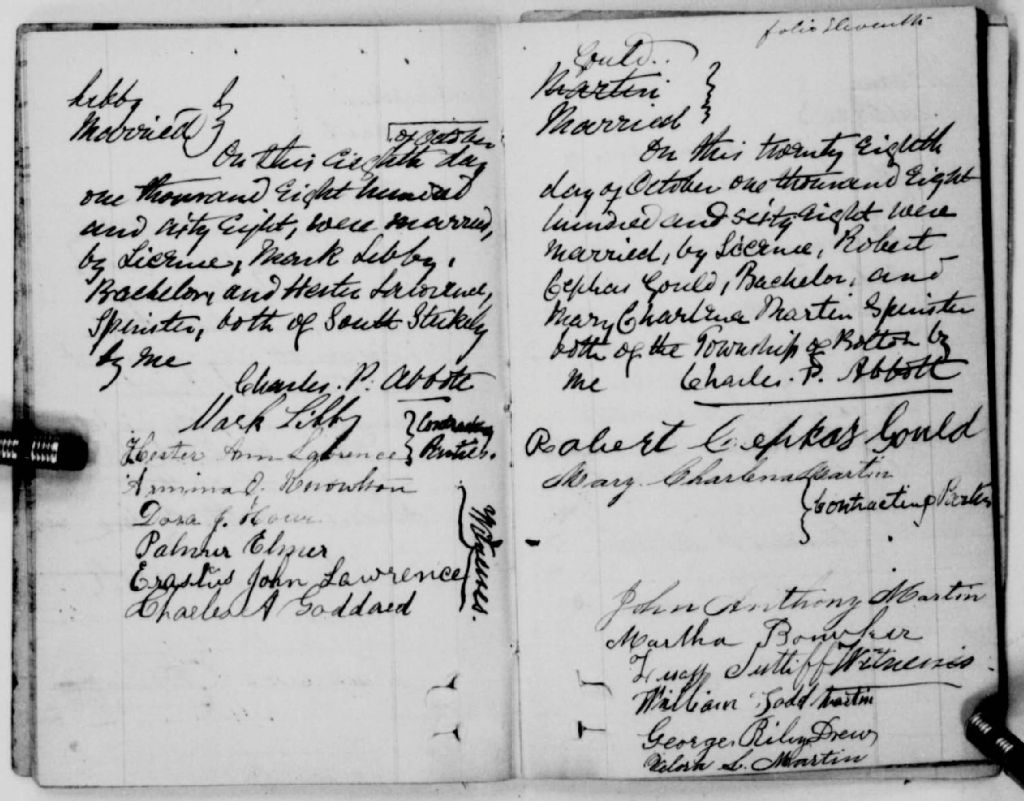 Libby
Married
of October
On this Eighth day
one thousand Eight hundred
and sixty Eight, were married,
by License, Mark Libby,
Bachelor, and Hester Lawrence,
Spinster, both of South Stukely
by me
Charles. P. Abbott
Mark Libby
Hester Ann Lawrence
Contracting
Parties.
Armina O. Knowlton
Dora J.
Palmer Elmer
Erastus John Lawrence
Charles A Goddard
Witnesses.
folio Eleventh
Gould..
Martin
Married
On this twenty Eighth
day of October one thousand Eight
hundred and sixty Eight were
married, by License, Robert
Cephas Gould, Bachelor, and
Mary Charlena Martin Spinster
both of the Township of Bolton by
me Charles. P. Abbott
Robert Cephas Gould
Mary Charlena Martin
Contracting Parties
John Anthony Martin
Martha Bowker
Sutliff Witnesses
William Todd Martin
George Riley Drew
L. Martin